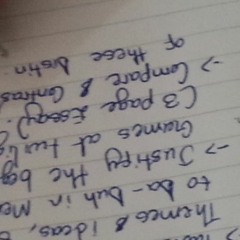 Themes & ideas,
to ba-duh in Me
→ Justify the ba
Games at twilig
(3 page Essay).
→ Compare & Contras
of these Distin